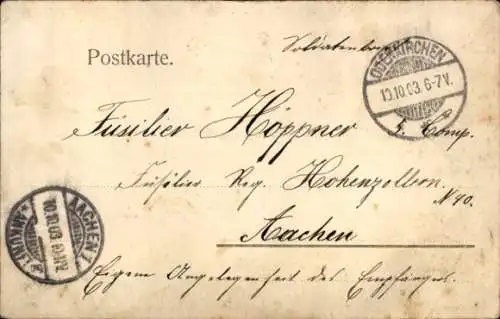 Soldatenbrief
Postkarte.
ODERKIRCHEN
10.10.03. 6-7V.
Füsilier Höppner
4. Comp.
Füsilier Reg. Hohenzollern
N 40.
Aachen
AACHEN 1
10.10.03
ANKUNFT
Eigene Angelegenheit des Empfängers.